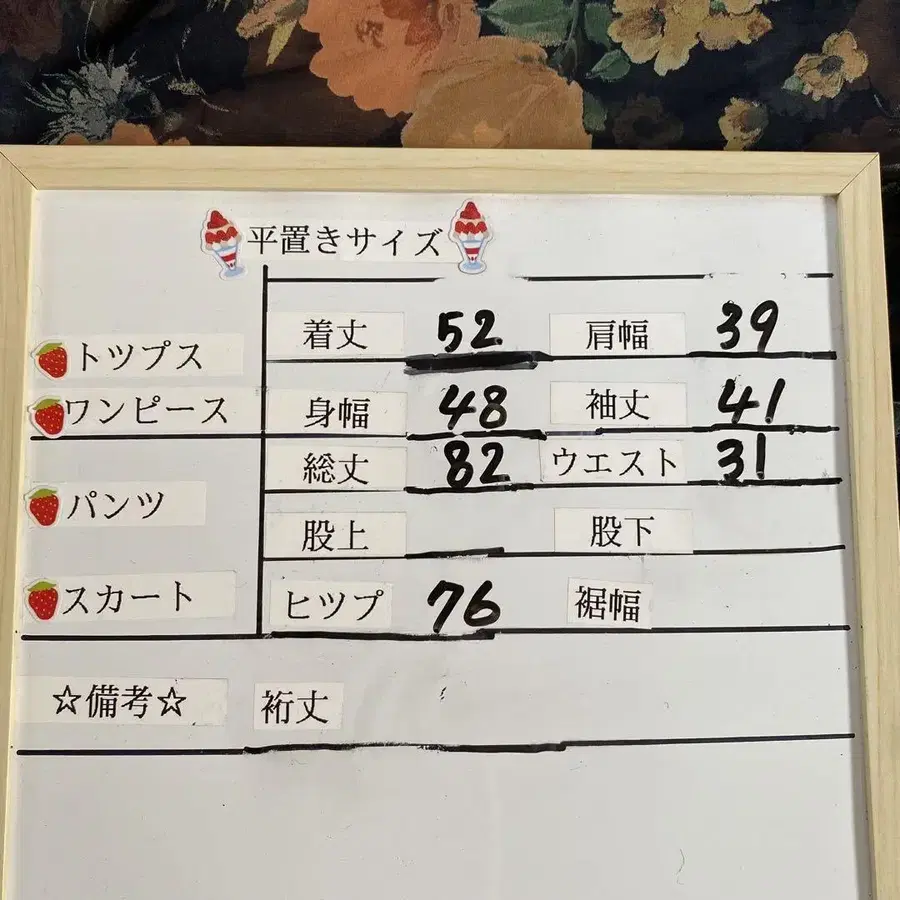 平置きサイズ
着丈 52 肩幅 39
トツプス
ワンピース 身幅 48 袖丈 41
総丈 82 ウエスト 31
パンツ
股上 股下
スカート ヒツプ 76 裾幅
☆備考☆ 裄丈